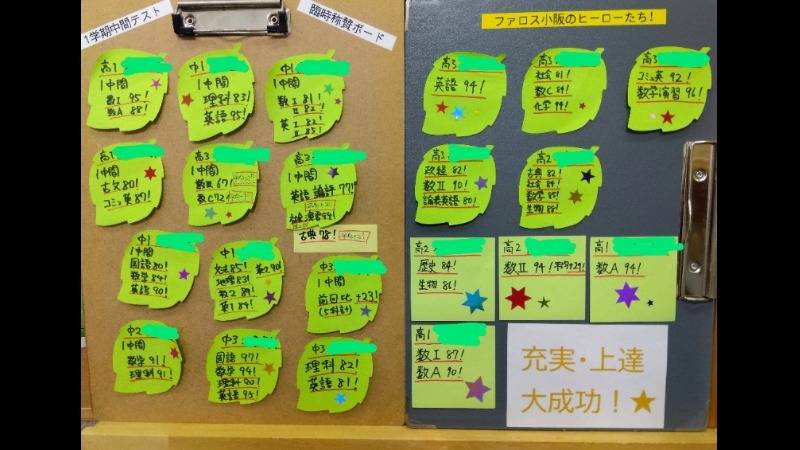 1学期中間テスト
臨時称賛ボード
高1
1中間
数Ⅰ 95!
数A 88!
中1
1中間
理科 83!
英語 95!
中1
1中間
数Ⅰ 81!
Ⅱ 82!
英Ⅰ 82!
Ⅱ 85!
高1
1中間
古文 80!
コミュ英 87!
高3
1中間
数Ⅲ 67!
数C 72!
高3
1中間
英語 論評 77!
古典 78!
中1
1中間
国語 80!
数学 84!
英語 90!
中1
地理 83!
数2 89!
英1 84!
中3
1中間
前回比 +23!
(5科計)
中2
1中間
数学 91!
理科 91!
中3
国語 97!
数学 94!
理科 90!
英語 95!
中3
理科 82!
英語 81!
ファロス小阪のヒーローたち!
高3
英語 94!
高3
社会 81!
数C 89!
化学 94!
高3
コミュ英 92!
数学演習 96!
高3
政経 82!
数Ⅱ 90!
論表英語 80!
高2
古典 82!
社会 84!
数学 85!
生物 88!
高2
歴史 84!
生物 86!
高2
数Ⅱ 94!
高1
数A 94!
高1
数Ⅰ 87!
数A 90!
充実・上達
大成功!★